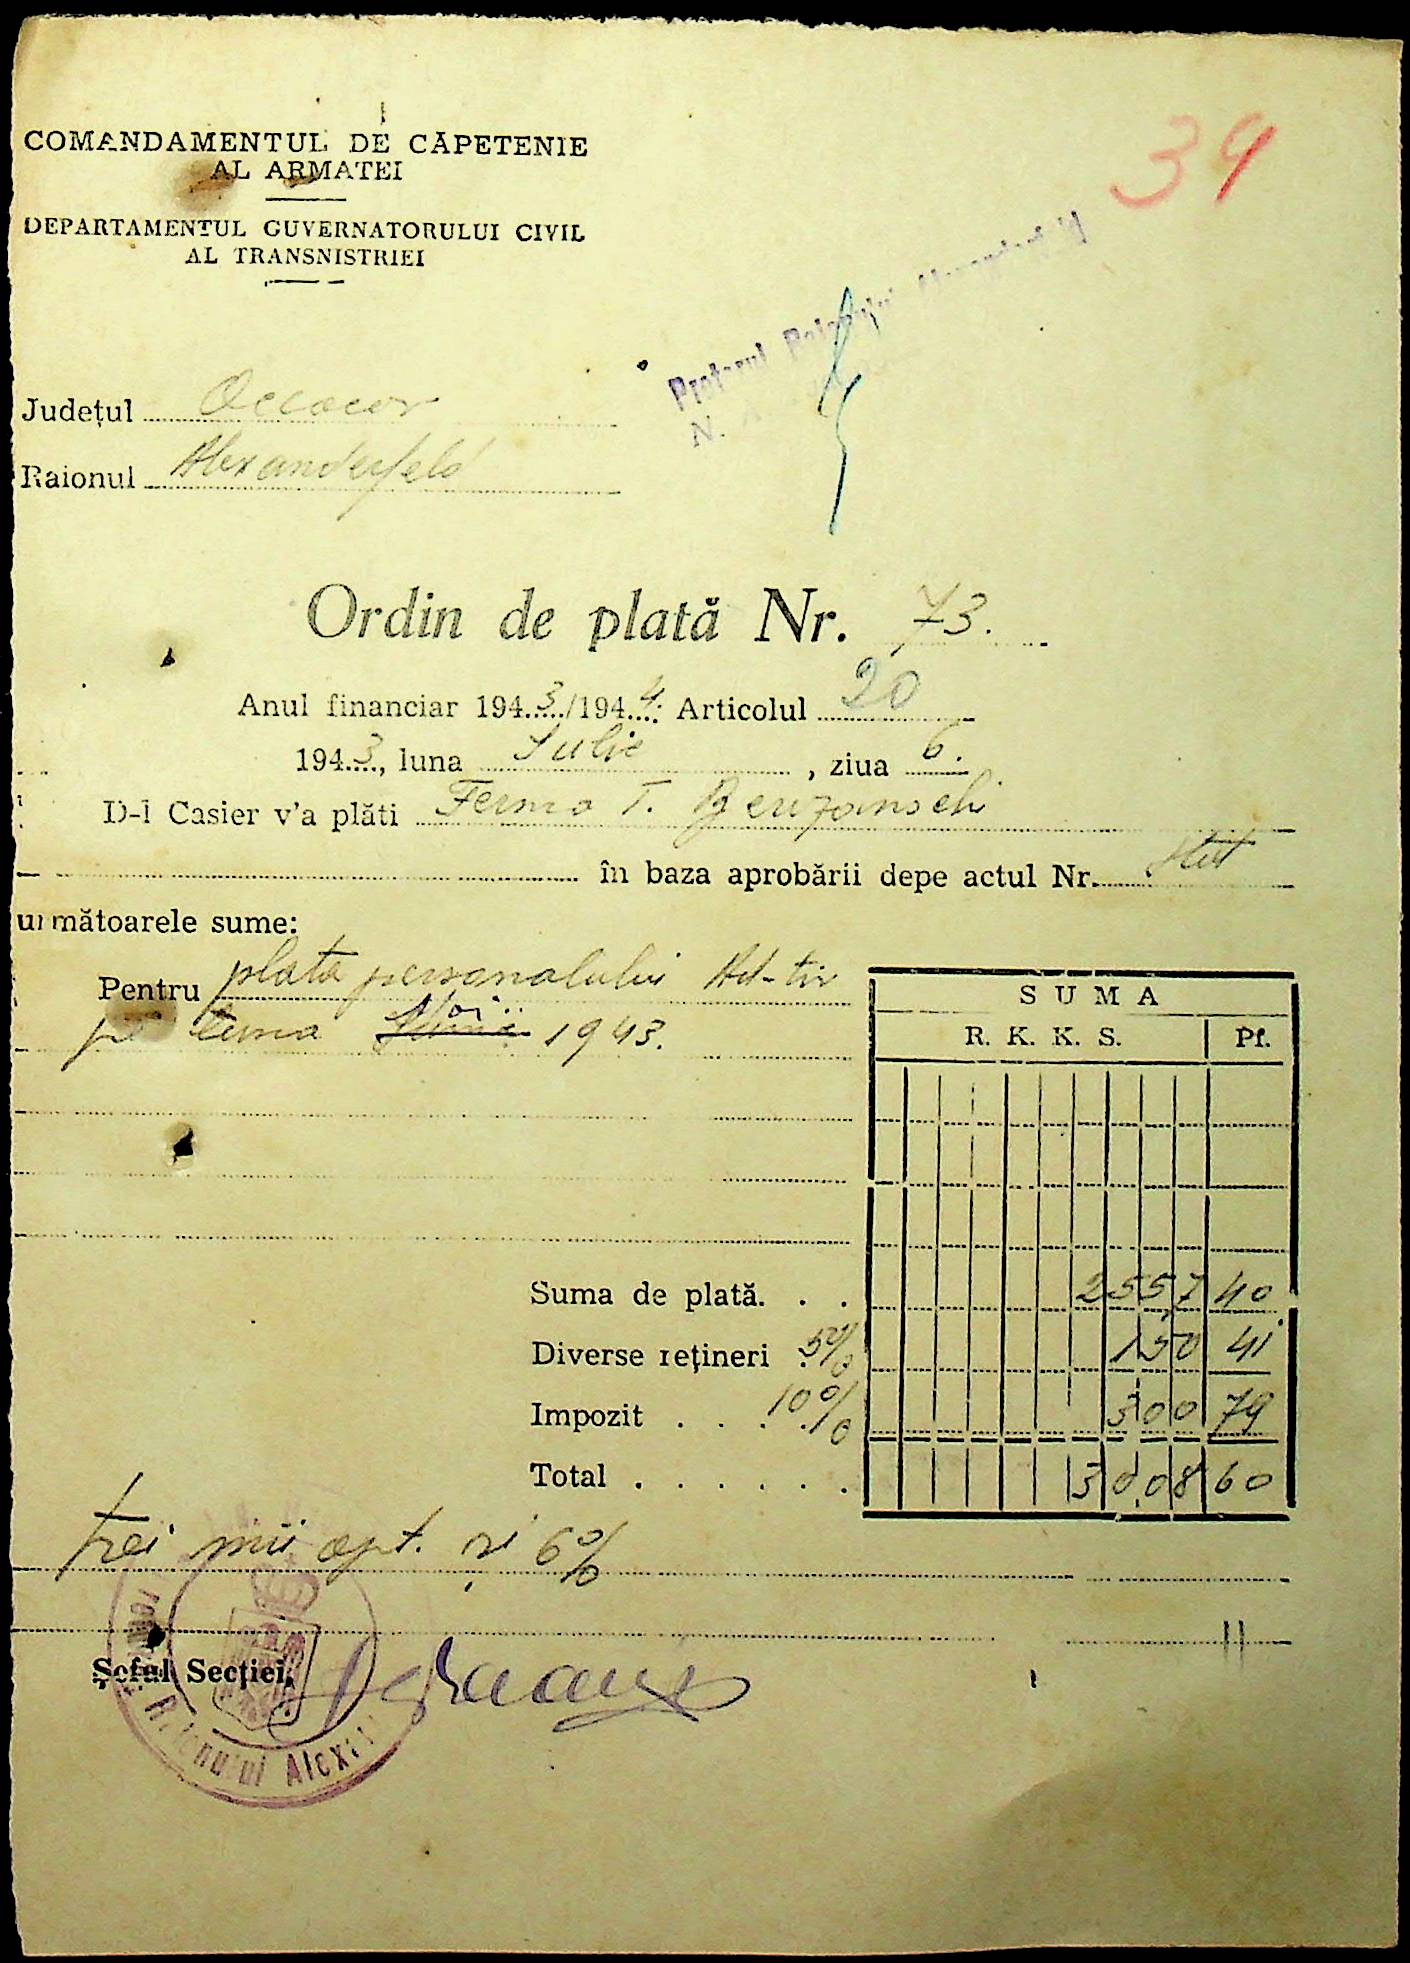 39
COMANDAMENTUL DE CĂPETENIE
AL ARMATEI
DEPARTAMENTUL GUVERNATORULUI CIVIL
AL TRANSNISTRIEI
Pretorul Raionului
N.
Județul
Raionul Alexanderfeld
Ordin de plată Nr. 73.
Anul financiar 1943/1944 Articolul 20
1943, luna Iulie, ziua 6.
D-l Casier v'a plăti Ferma T. Berezanschi
în baza aprobării depe actul Nr.
următoarele sume:
Pentru plata personalului Ad-tiv
pe luna Mai 1943.
SUMA
R. K. K. S. Pf.
Suma de plată. . . 2557 40
Diverse rețineri 5% 150 41
Impozit . . . 10% 300 79
Total . . . . . . 3008 60
trei mii opt. și 60
Șeful Secției,
Raionului Alex